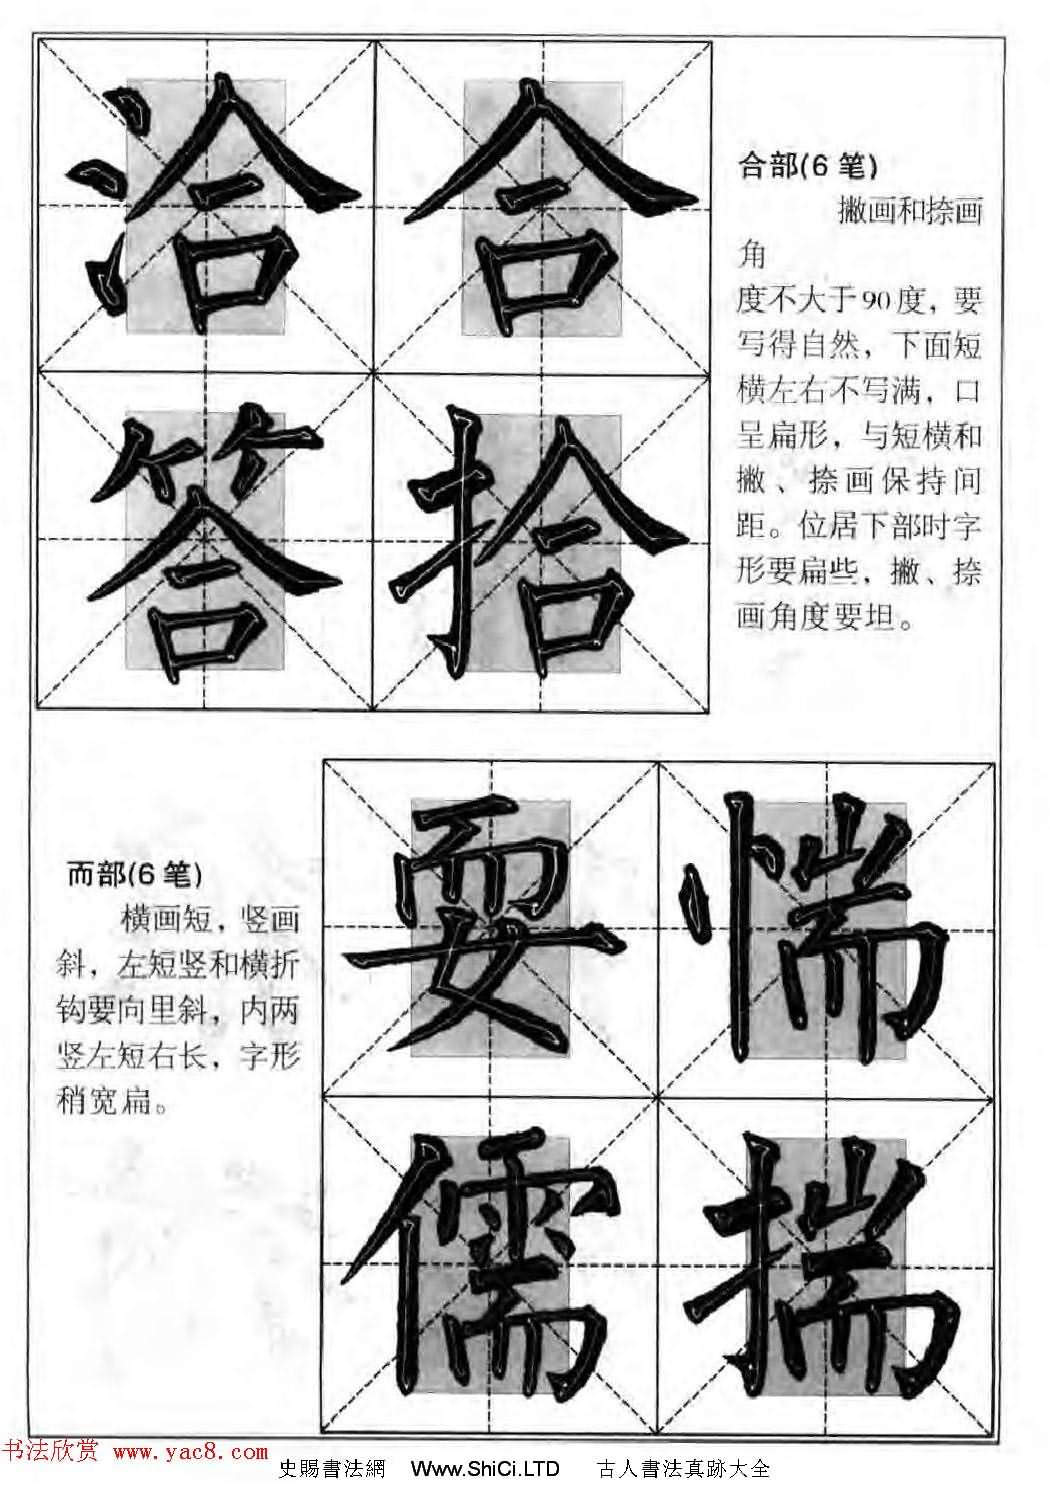 洽合
答拾
合部(6 笔)
撇画和捺画
角
度不大于90度，要
写得自然，下面短
横左右不写满，口
呈扁形，与短横和
撇、捺画保持间
距。位居下部时字
形要扁些，撇、捺
画角度要坦。
而部(6 笔)
横画短，竖画
斜，左短竖和横折
钩要向里斜，内两
竖左短右长，字形
稍宽扁。
耍惴
儒揣
书法欣赏 www.yac8.com
史賜書法網 Www.ShiCi.LTD 古人書法真跡大全